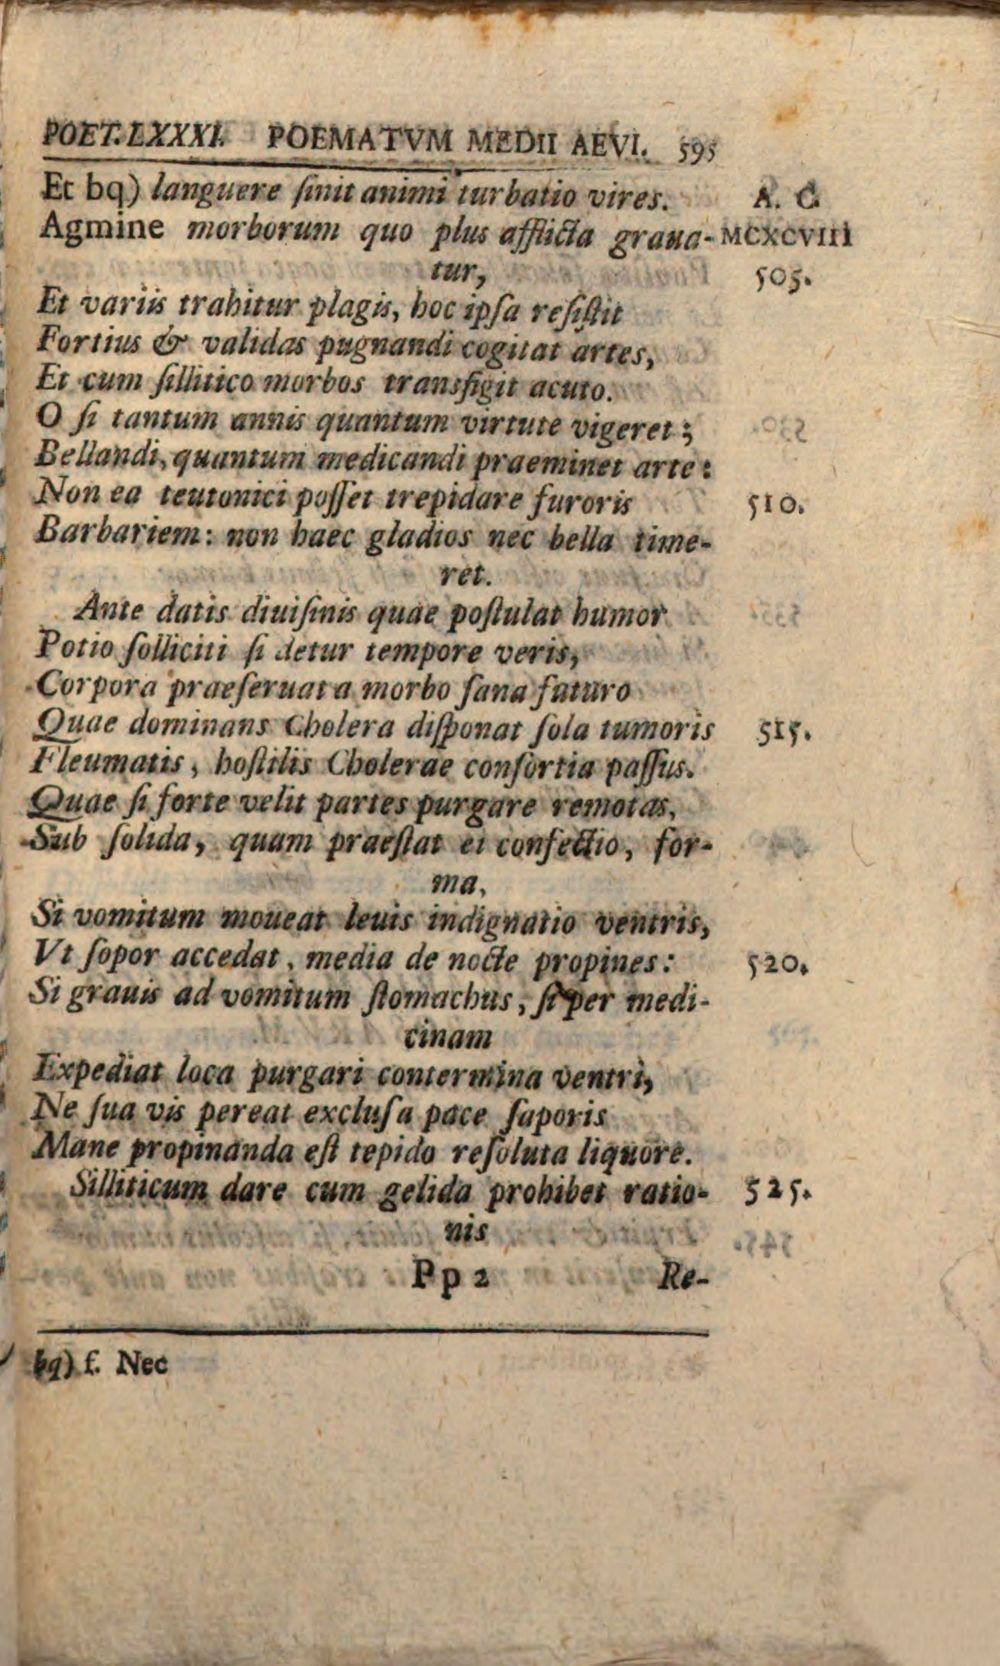 POET. LXXXI. POEMATVM MEDII AEVI. 595
Et bq) languere ſinit animi turbatio vires. A. C.
Agmine morborum quo plus afflicta graua- MCXCVIII
tur, 505.
Et variis trahitur plagis, hoc ipſa reſiſtit
Fortius & validas pugnandi cogitat artes,
Et cum ſillitico morbos transfigit acuto.
O ſi tantum annis quantum virtute vigeret;
Bellandi, quantum medicandi praeminet arte:
Non ea teutonici poſſet trepidare furoris 510.
Barbariem: non haec gladios nec bella time-
ret.
Ante datis diuiſinis quae poſtulat humor
Potio ſolliciti ſi detur tempore veris,
Corpora praeſeruat a morbo ſana futuro
Quae dominans Cholera diſponat ſola tumoris 515.
Fleumatis, hoſtilis Cholerae conſortia paſſus.
Quae ſi forte velit partes purgare remotas,
Sub ſolida, quam praeſtat ei confectio, for-
ma,
Si vomitum moueat leuis indignatio ventris,
Vt ſopor accedat, media de nocte propines: 520.
Si grauis ad vomitum ſtomachus, ſi per medi-
cinam
Expediat loca purgari contermina ventri,
Ne ſua vis pereat excluſa pace ſaporis
Mane propinanda eſt tepido reſoluta liquore.
Silliticum dare cum gelida prohibet ratio- 525.
nis
Pp 2 Re-
bq) f. Nec